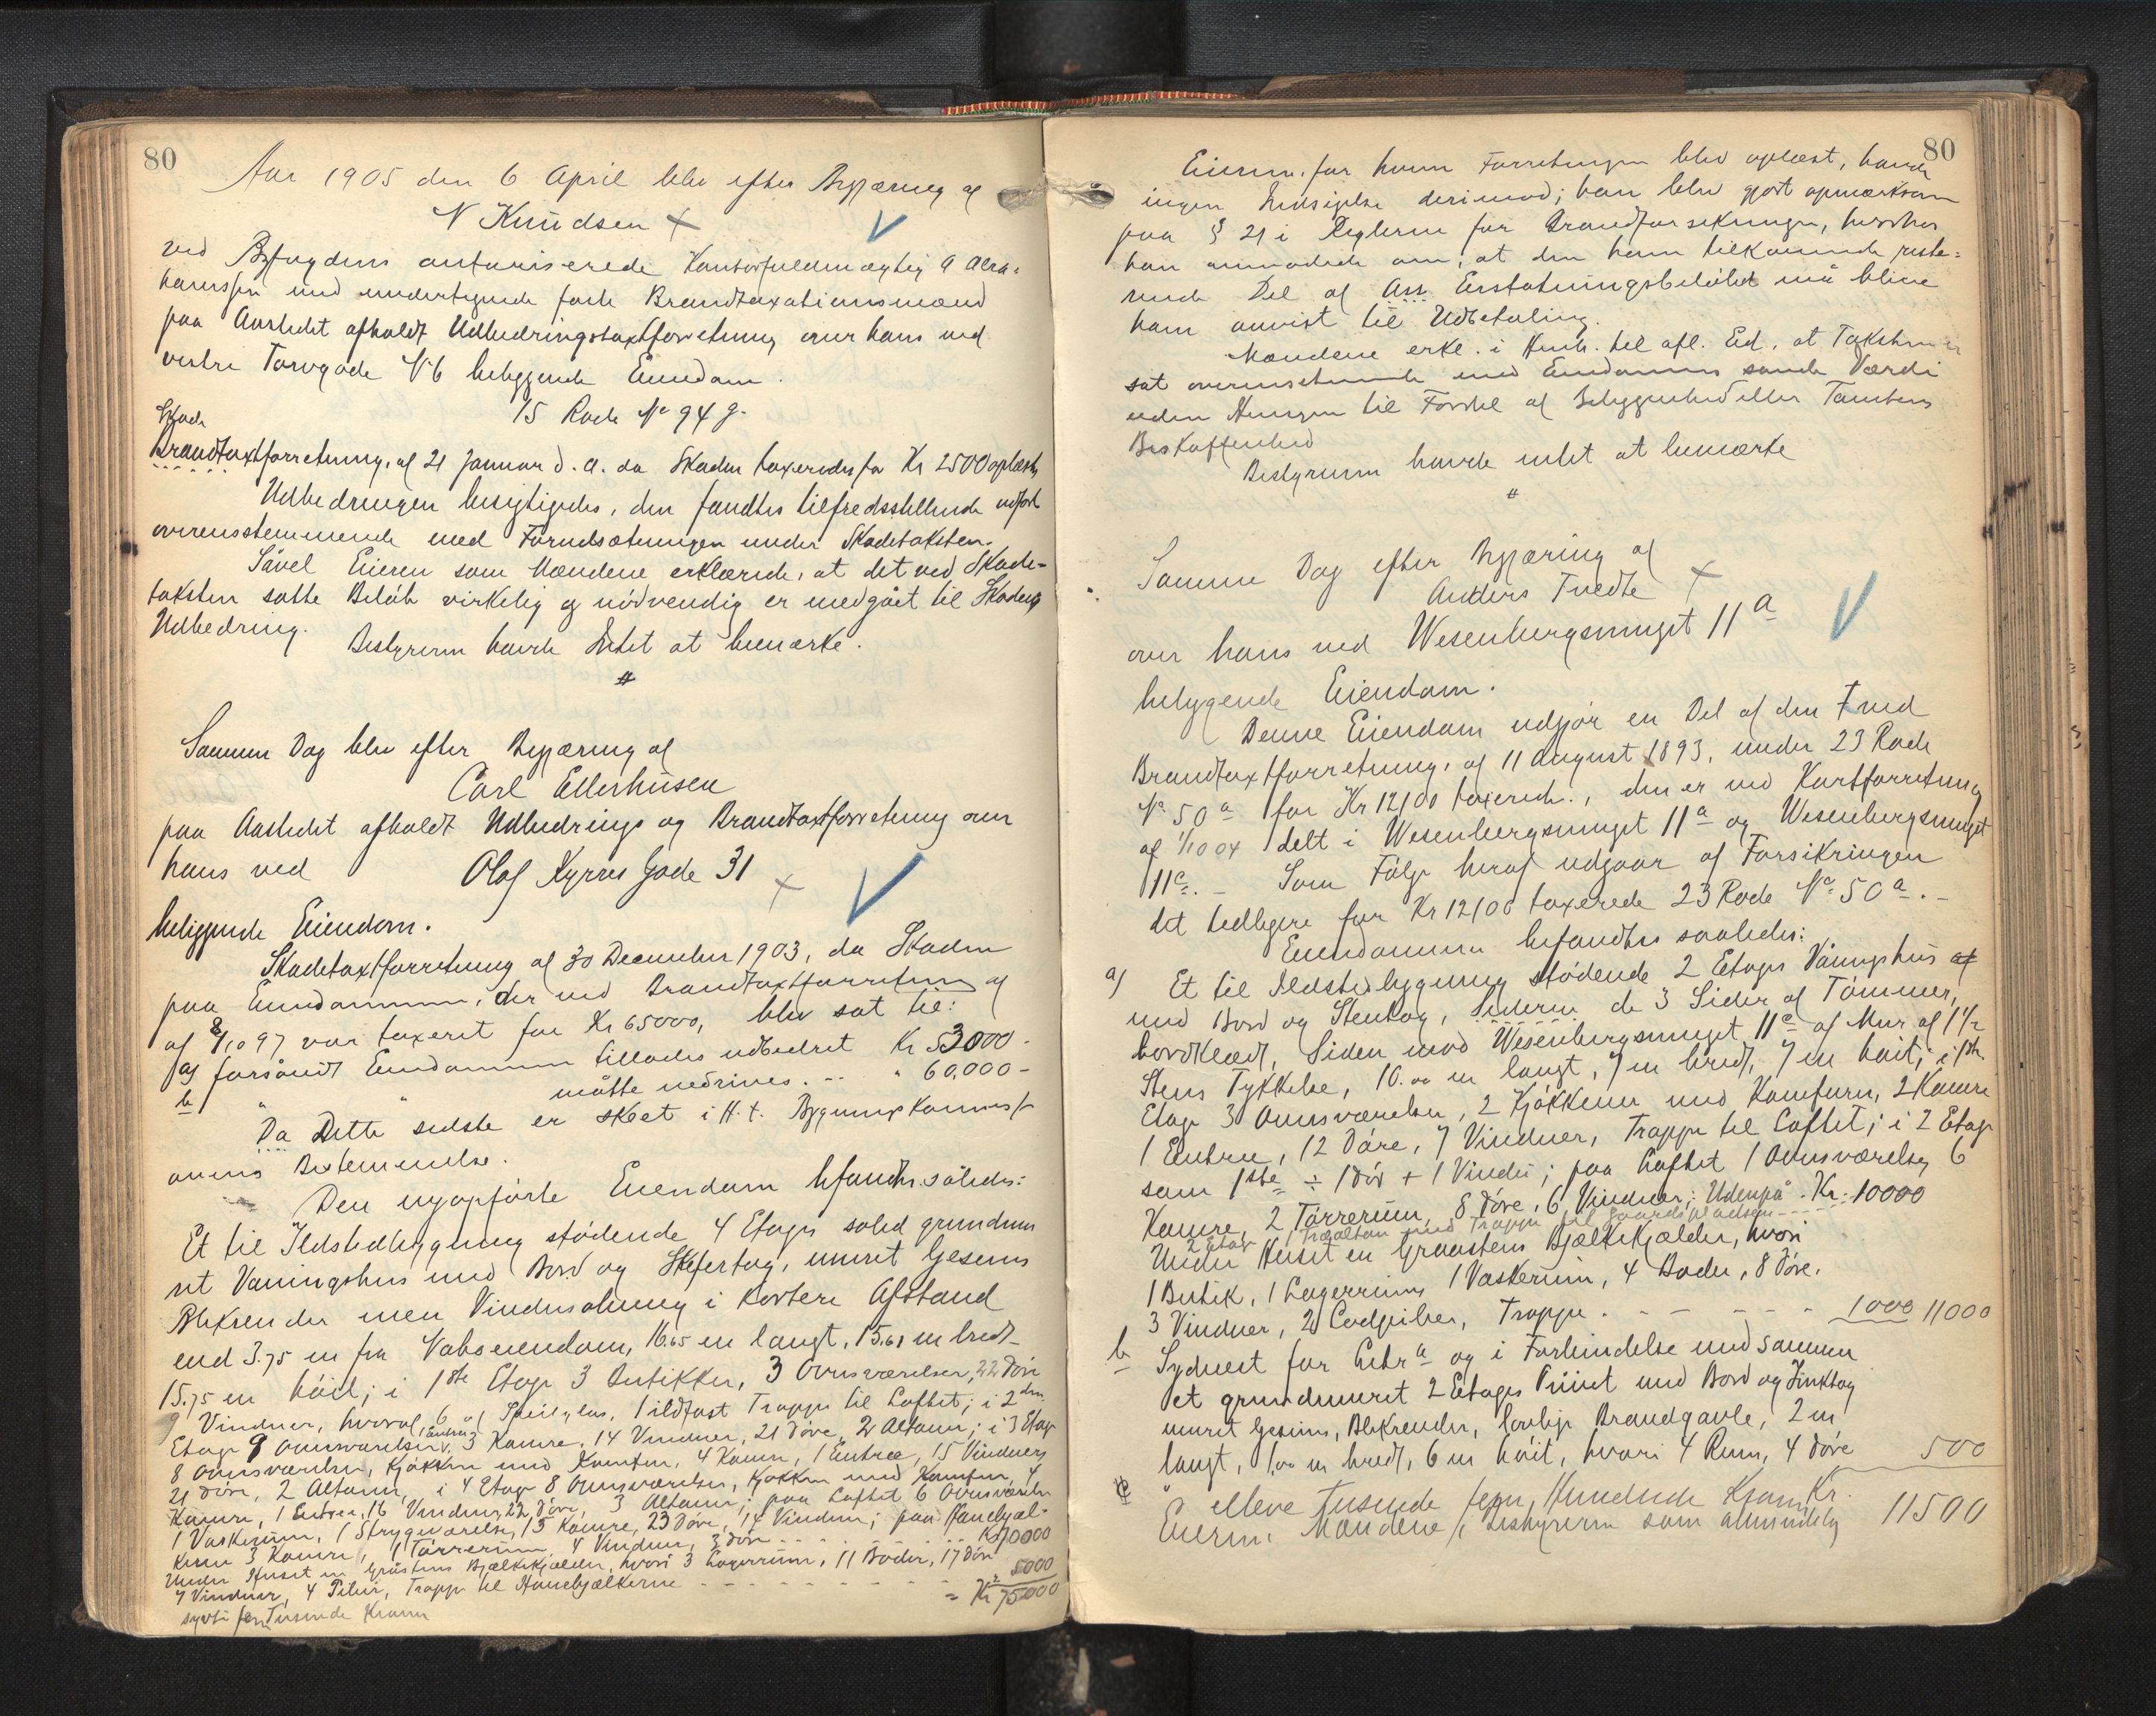 80
Aar 1905 den 6 April blev efter Begjæring af
N Knudsen
ved Byfogdens autoriserede Kontorfuldmægtig A Abra=
hamssen med undertegnede faste Brandtaxationsmænd
paa Aastedet afholdt Udbedringstaxtforretning over hans ved
vestre Torvgade No 6 beliggende Eiendom.
15 Rode No 94 g.
Skade
Brandtaxtforretning, af 21 Januar d. a. da Skaden taxeredes for Kr 2500 oplæstes
Udbedringen besigtigedes, den fandtes tilfredsstillende udført
overensstemmende med Forudsætningen under Skadetaksten.
Såvel Eieren som Mændene erklærede, at det ved Skade=
taksten satte Beløb virkelig og nødvendig er medgået til Skadens
Udbedring.
Bestyreren havde Intet at bemærke.
#
Samme Dag blev efter Begjæring af
Carl Ellerhusen
paa Aastedet afholdt Udbedrings og Brandtaxtforretning over
hans ved Olaf Kyrres Gade 31
beliggende Eiendom.
Skadetaxtforretning af 30 December 1903, da Skaden
paa Eiendommen, der ved Brandtaxtforretning af
af 8/10 97 var taxeret for Kr 65000, blev sat til:
a) forsåvidt Eiendommen tillodes udbedret Kr 53000.
b " " måtte nedrives. -- " 60,000 -
Da Dette sidste er skeet i H. t. Bygningskommissi
onens Bestemmelse.
Den nyopførte Eiendom befandtes således:
Et til Ildstedbygning stødende 4 Etages solid grundmu
ret Vaningshus med Bord og Skifertag, muret Gesems
Blikrender men Vinduesåbning i kortere Afstand
end 3.75 m fra Naboeiendom, 16.65 m langt, 15.61 m bredt
15.75 m høit; i 1ste Etage 3 Butikker, 3 Ovnsværelser, 22 Døre
9 Vinduer, hvoraf 6 af Speilglas, 1 ildfast Trappe til Loftet; i 2den
Etage 9 Ovnsværelser, 3 Kamre, 14 Vinduer, 21 Døre, 2 Altaner; i 3 Etage
8 Ovnsværelser, Kjøkken med Komfur, 4 Kamre, 1 Entree, 15 Vinduer
21 Døre, 2 Altaner, i 4 Etage 8 Ovnsværelser, Kjøkken med Komfur, 4
Kamre, 1 Entree, 16 Vinduer, 22 Døre, 3 Altaner; paa Loftet 6 Ovnsværelser
1 Vaskerum, 1 Strygeværelse, 13 Kamre, 23 Døre, 14 Vinduer; paa Hanebjæl-
kerne 3 Kamre, 1 Tørrerum, 4 Vinduer, 3 Døre . . . Kr 70000
Under Huset en Gråstens Bjælkekjælder, hvori 3 Lagerrum, 11 Boder, 17 Døre
7 Vinduer, 4 Piller, Trappe til Hanebjælkerne - - - - 5000
= Kr 75000
sytti fem Tusinde Kroner
80
Eieren, for hvem Forretningen blev oplæst, havde
ingen Indsigelse derimod; han blev gjort opmærksom
paa § 21 i Reglerne for Brandforsikringen, hvorhos
han anmodede om, at den ham tilkommende reste=
rende Del af Ass Erstatningsbeløbet må blive
ham anvist til Udbetaling.
Mændene erkl. i Henh. til afl. Ed, at Taksten er
sat overensstemmende med Eiendommens sande Værdi
uden Hensyn til Fordel af Beliggenhed eller Tomtens
Beskaffenhed
Bestyreren havde intet at bemærke
#
Samme Dag efter Begjæring af
Anders Tvedte
over hans ved Wesenbergsmuget 11 a
beliggende Eiendom.
Denne Eiendom udgjør en Del af den ved
Brandtaxtforretning, af 11 August 1893, under 23 Rode
No 50 a for Kr 12100 taxerede, den er ved Kartforretning
af 1/10 04 delt i Wesenbergsmuget 11 a og Wesenbergsmuget
11 c. - Som Følge heraf udgaar af Forsikringen
det tidligere for Kr 12100 taxerede 23 Rode No 50 a. -
Eiendommen befandtes saaledes:
a) Et til Ildstedbygning stødende 2 Etages Våningshus af
med Bord og Stentag, Siderne de 3 Sider af Tømmer,
bordklædt, Siden mod Wesenbergsmuget 11 c af Mur af 1 1/2
Stens Tykkelse, 10.00 m langt, 7 m bredt, 7 m høit; i 1ste
Etage 3 Ovnsværelser, 2 Kjøkkener med Komfurer, 2 Kamre
1 Entree, 12 Døre, 7 Vinduer, Trappe til Loftet; i 2 Etage
som 1ste ÷ 1 dør + 1 Vindu; paa Loftet 1 Ovnsværelse, 6
Kamre, 2 Tørrerum, 8 Døre, 6 Vinduer; Udenpå . Kr. 10000
2 Etag 1 Træaltan med Trappe til Gaardspladsen - - - -
Under Huset en Graastens Bjælkekjælder, hvori
1 Butik, 1 Lagerrum, 1 Vaskerum, 4 Boder, 8 Døre,
3 Vinduer, 2 Lodpiber, Trappe . - - - - 1000 11000
b Sydvest for Litr a og i Forbindelse med samme
et grundmuret 2 Etages Privet med Bord og Zinktag
muret Gesims, Blikrender, lovlige Brandgavle, 2 m
langt, 1.00 m bredt, 6 m høit, hvori 4 Rum, 4 Døre 500
elleve Tusinde fem Hundrede Kroner Kr. 11500
Eieren, Mændene, Bestyreren som almindelig